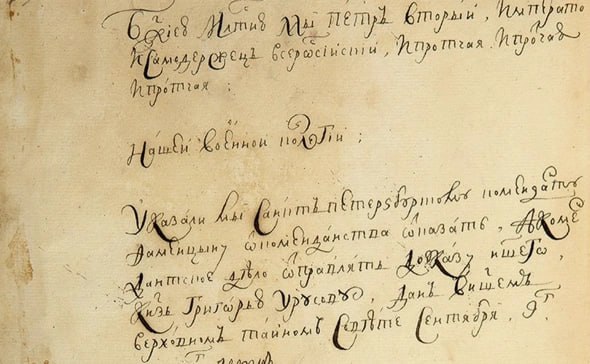 Бжїею Млтию Мы Петръ Вторый, Императо
И Самодержецъ всеросїискїй, И протчая И протчая
И протчая :
Нашей военной колегїи ;
Указали мы Санктъ петерзбурскому коменданту
Фаминцыну ѿ комендантства ѿказать, А коме
дантское дѣло ѿправлять до указу нашего,
Кнзь Григорью Урусову, Данъ в нашемъ
верховномъ тайномъ Советѣ Сентября, 9г